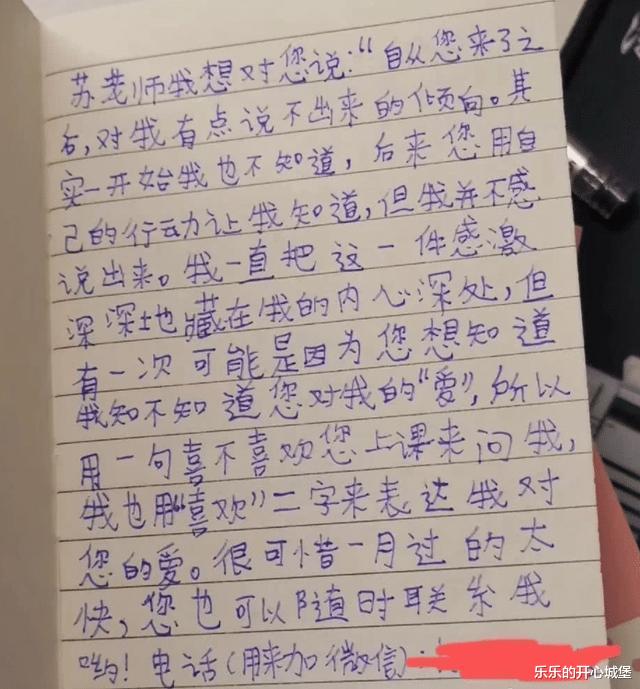 苏老师我想对您说:“自从您来了之
后,对我有点说不出来的倾向。其
实一开始我也不知道,后来您用自
己的行动让我知道,但我并不感
说出来。我一直把这一件感激
深深地藏在我的内心深处,但
有一次可能是因为您想知道
我知不知道您对我的“爱”,所以
用一句喜不喜欢您上课来问我,
我也用“喜欢”二字来表达我对
您的爱。很可惜一月过的太
快,您也可以随时联系我
哟!电话(用来加微信):
乐乐的开心城堡